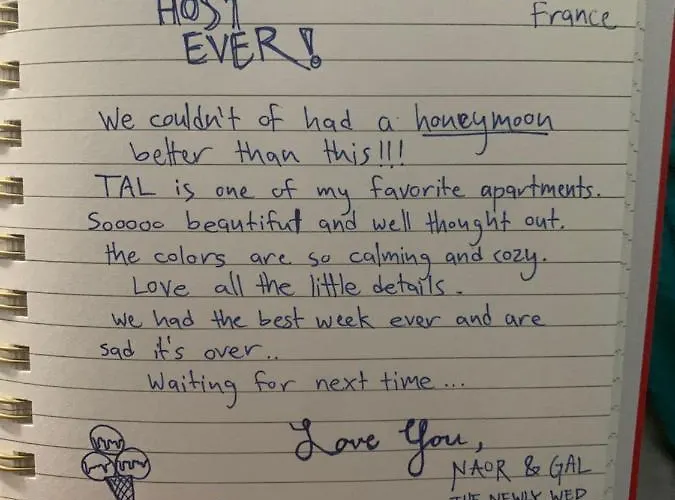 HOST
France
EVER!
We couldn't of had a honeymoon
better than this!!!
TAL is one of my favorite apartments.
Sooooo beautiful and well thought out.
the colors are so calming and cozy.
Love all the little details.
we had the best week ever and are
sad it's over..
Waiting for next time...
Love You,
NAOR & GAL
THE NEWLY WED